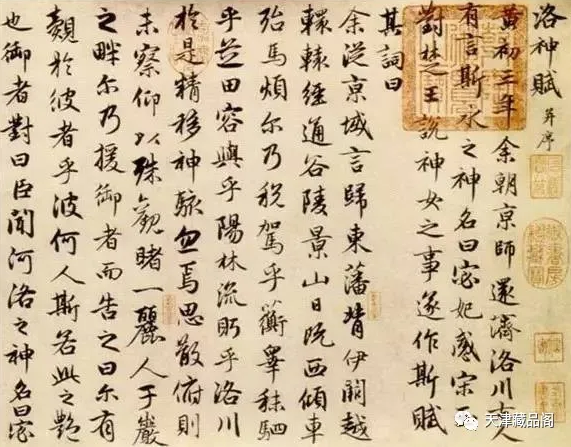 洛神賦 并序
黃初三年余朝京師還濟洛川古
有言斯水之神名曰宓妃感宋玉
對楚王說神女之事遂作斯賦
其詞曰
余從京域言歸東藩背伊闕越
轘轅經通谷陵景山日既西傾車
殆馬煩尔乃稅駕乎蘅皋秣駟
乎芝田容與乎陽林流眄乎洛川
於是精移神駭忽焉思散俯則
未察仰以殊觀睹一麗人于巖
之畔尔乃援御者而告之曰尔有
覿於彼者乎彼何人斯若此之艷
也御者對曰臣聞河洛之神名曰宓
天津藏品阁